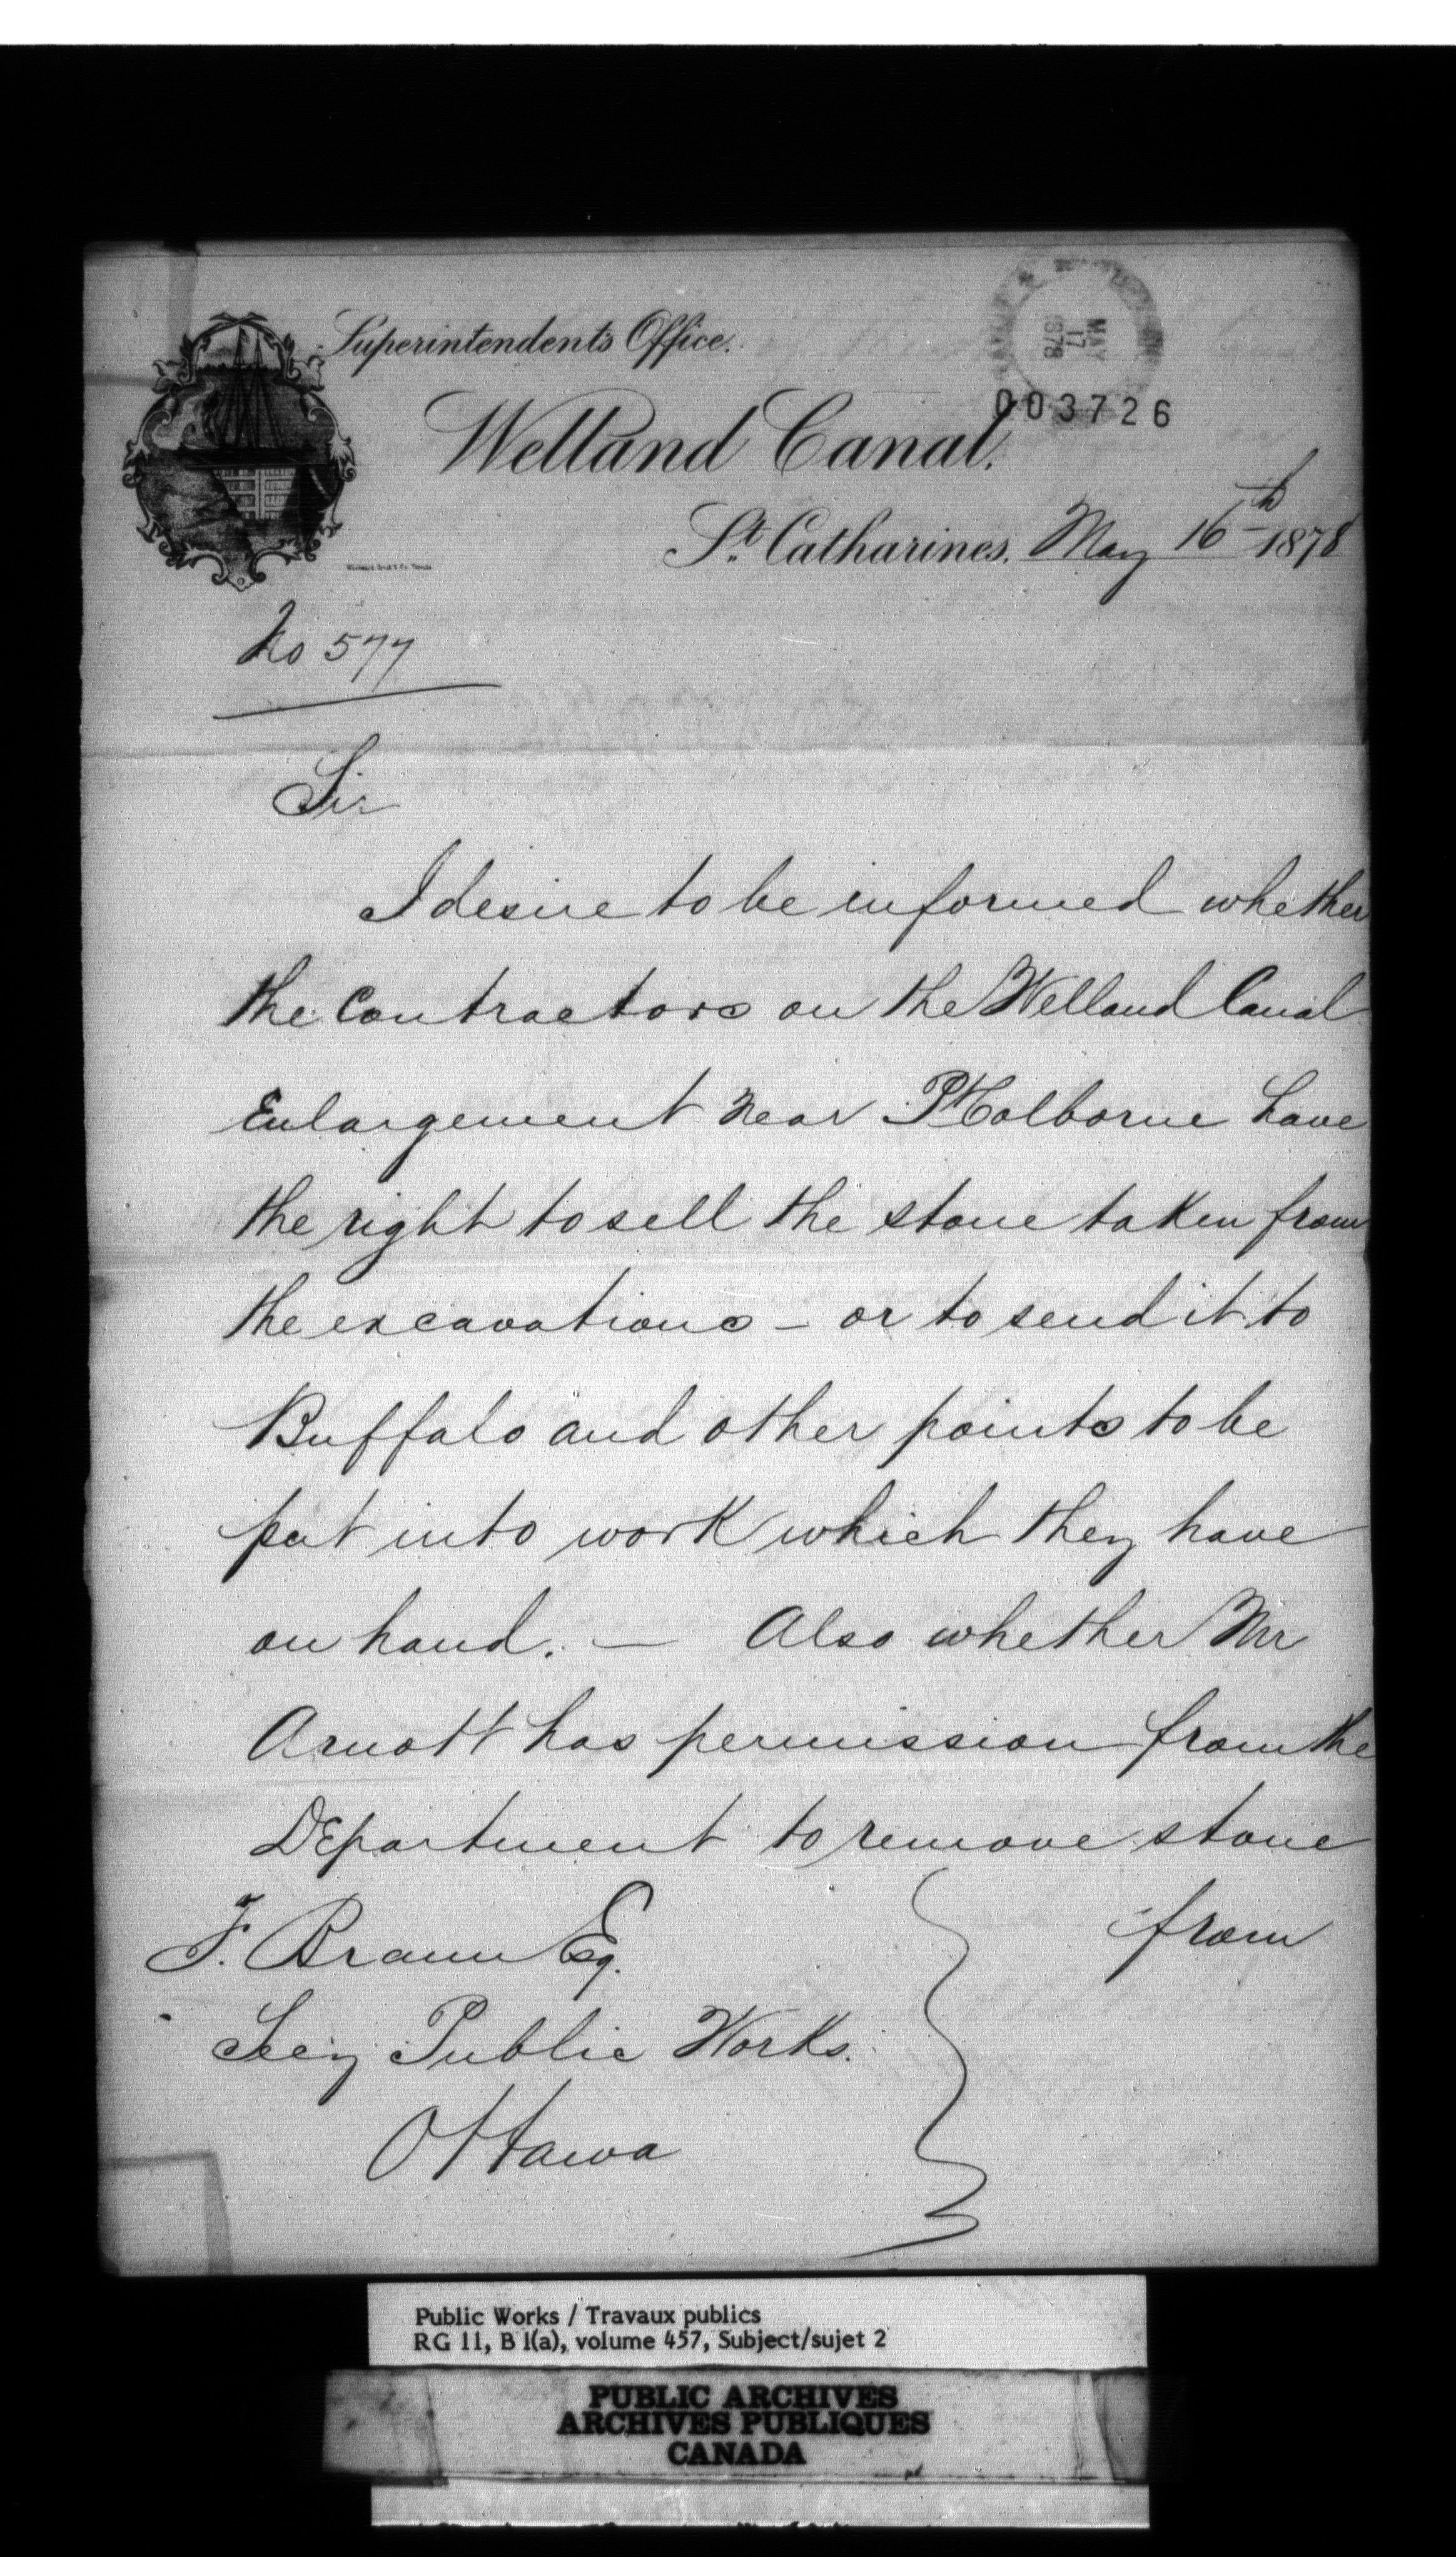 Superintendent's Office.
MAY
17
1878
003726
Welland Canal.
St. Catharines. May 16th 1878
No 577
Sir
I desire to be informed whether
the Contractors on the Welland Canal
Enlargement near Pt Colborne have
the right to sell the stone taken from
the excavations - or to send it to
Buffalo and other points to be
put into work which they have
on hand. — Also whether Mr
Arnott has permission from the
Department to remove stone
from
F. Braun Esq.
Secy Public Works.
Ottawa
Public Works / Travaux publics
RG 11, B 1(a), volume 457, Subject/sujet 2
PUBLIC ARCHIVES
ARCHIVES PUBLIQUES
CANADA